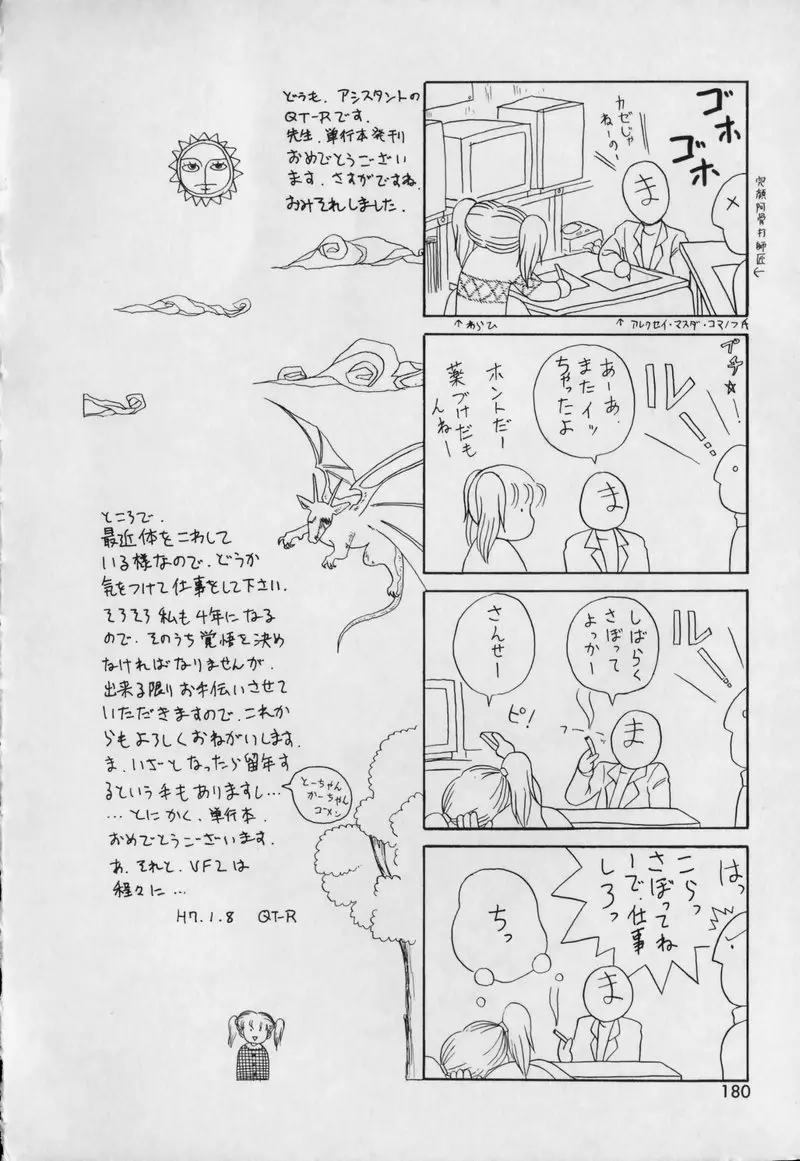 ゴホ
ゴホ
カゼじゃ
ねーの。
ま
×
兇顔阿骨打師匠
↑わらひ
↑アレクセイ・マスダ・コマノフ氏
プチ☆
ルー!
あーあ。
またイッ
ちゃったよ
ホントだー
薬づけだも
んねー
ま
ルー!
しばらく
さぼって
よっかー
さんせー
ピ!
ま
はっ
こらっ
さぼってね
ーで、仕事
しろっ
ちっ
ま
どうも、アシスタントの
QT-Rです。
先生、単行本発刊
おめでとうござい
ます。さすがですね。
おみそれしました。
ところで、
最近体をこわして
いる様なので、どうか
気をつけて仕事をして下さい。
そろそろ私も4年になる
ので、そのうち覚悟を決め
なければなりませんが、
出来る限りお手伝いさせて
いただきますので、これか
らもよろしくおねがいします。
ま、いざとなったら留年す
るという手もありますし…
とーちゃん
かーちゃん
ゴメン
…とにかく、単行本、
おめでとうございます。
あ、それと、VF2は
程々に…
H7.1.8 QT-R
180